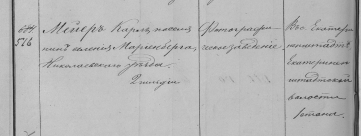 516
Мейеръ Карлъ, поселя-
нинъ колоніи Маріенбергъ,
Николаевскаго уѣзда.
2 гильдіи
Фотографи-
ческое заведеніе.
Въ с. Екатери-
ненштадтѣ
Екатеринен-
штадтской
волости